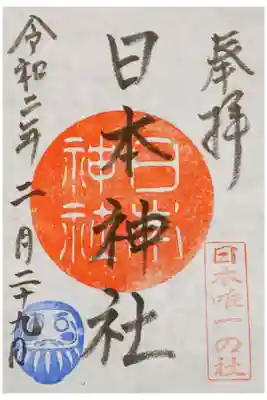 奉拝
日本唯一の社
日本神社
日本神社
令和二年二月二十九日